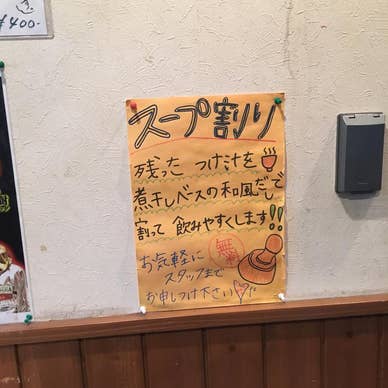 ¥400-
スープ割り
残った つけ汁を
煮干しベースの和風だしで
割って 飲みやすくします!!
無料
お気軽に
スタッフまで
お申しつけ下さい